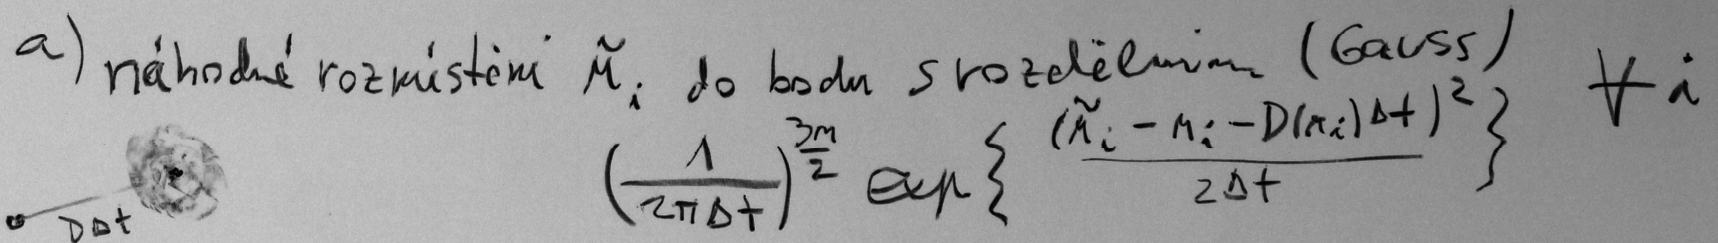 a) náhodné rozmístění r̃ᵢ do bodu s rozdělením (Gauss) ∀ i
(1/(2πΔt))^(3n/2) exp{ (r̃ᵢ - rᵢ - D(rᵢ)Δt)² / 2Δt }
DΔt